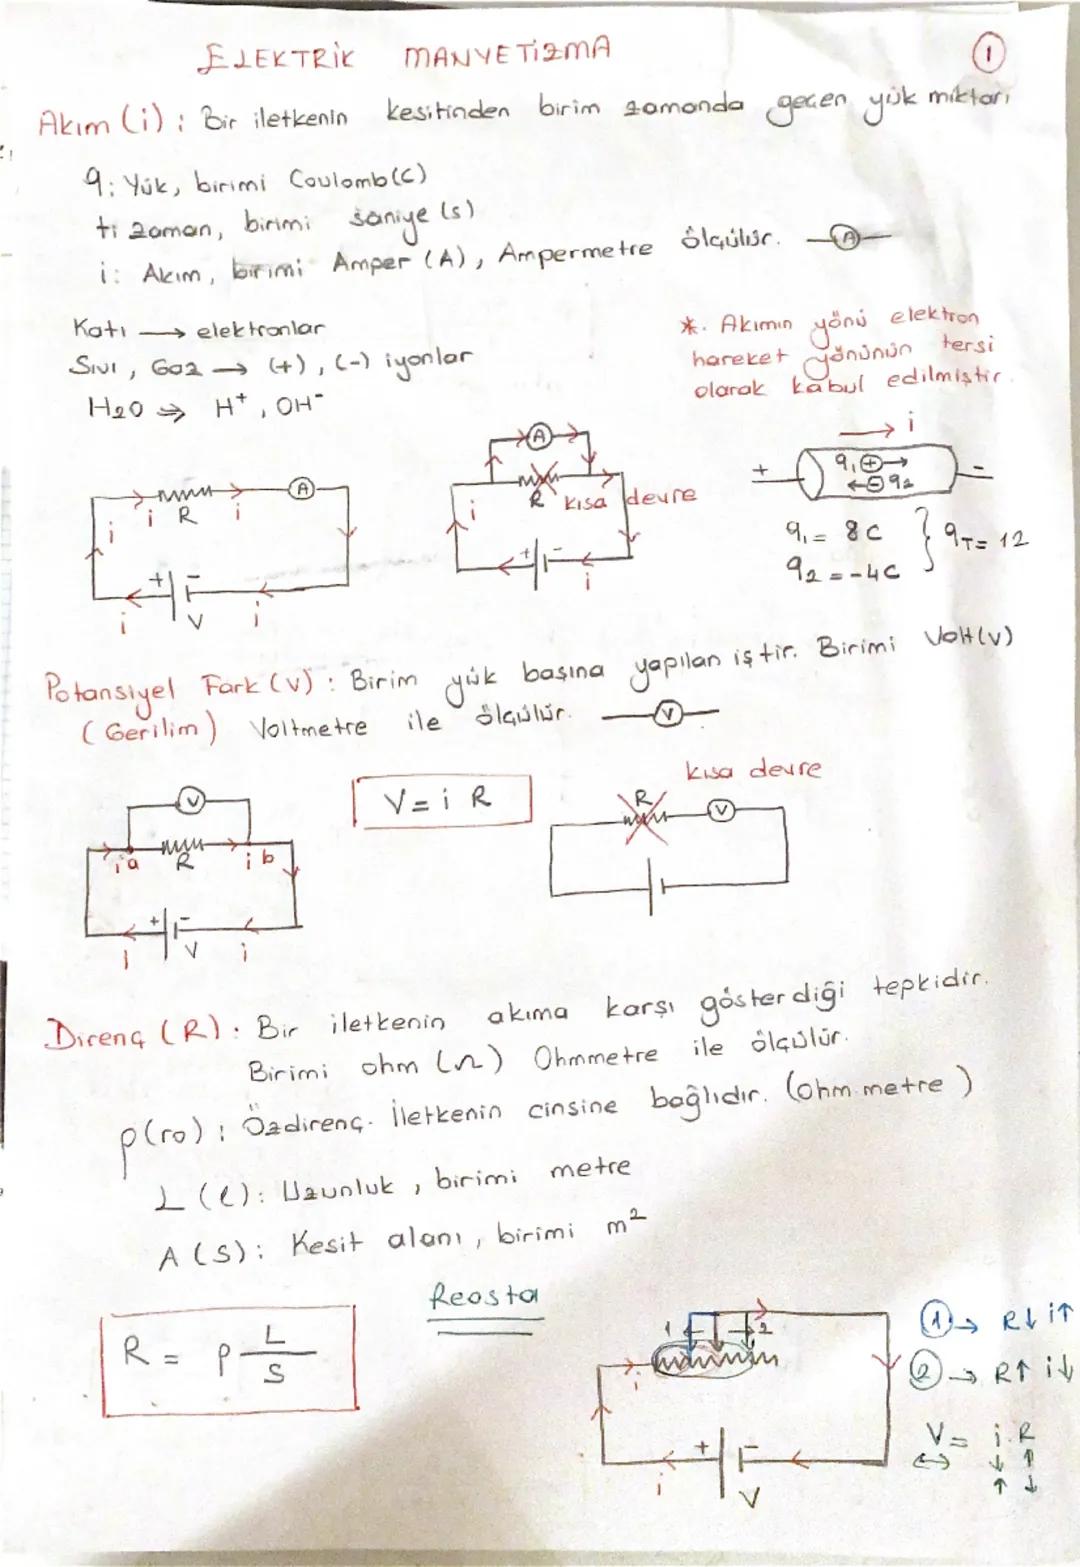 ELEKTRİK MANYETİZMA
1
Akım (i) : Bir iletkenin kesitinden birim zamanda geçen yük miktarı
q: Yük, birimi Coulomb(C)
t: zaman, birimi saniye (s)
i: Akım, birimi Amper (A), Ampermetre ölçülür. A
Katı → elektronlar
Sıvı, Gaz → (+), (-) iyonlar
H2O ⇒ H+, OH-
*. Akımın yönü elektron
hareket yönünün tersi
olarak kabul edilmiştir.
i i R i A + - i V i
A i R kısa devre + - i
→ i
+ q1 ⊕→ -
←⊖ q2
q1 = 8C
q2 = -4C
} qT = 12
Potansiyel Fark (V) : Birim yük başına yapılan iştir. Birimi Volt(V)
(Gerilim) Voltmetre ile ölçülür. V
V i a R i b + - i V i
V = i R
kısa devre
R V
Direnç (R) : Bir iletkenin akıma karşı gösterdiği tepkidir.
Birimi ohm (Ω) Ohmmetre ile ölçülür.
ρ(ro) : Özdirenç. İletkenin cinsine bağlıdır. (ohm.metre)
L (l) : Uzunluk, birimi metre
A (S) : Kesit alanı, birimi m²
R = ρ L/S
Reosta
1 2 i + - i V
① → R↓ i↑
② → R↑ i↓
V = i.R
↔ ↓ ↑
↑ ↓